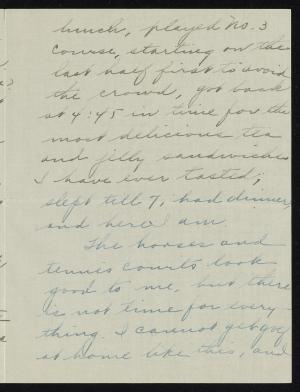 lunch, played No. 3
course, starting on the
last half first to avoid
the crowd, got back
at 4:45 in time for the
most delicious tea
and jilly sandwiches
I have ever tasted;
slept till 7, had dinner,
and here I am.
The horses and
tennis courts look
good to me, but there
is not time for every-
thing. I cannot get golf
at home like this, and